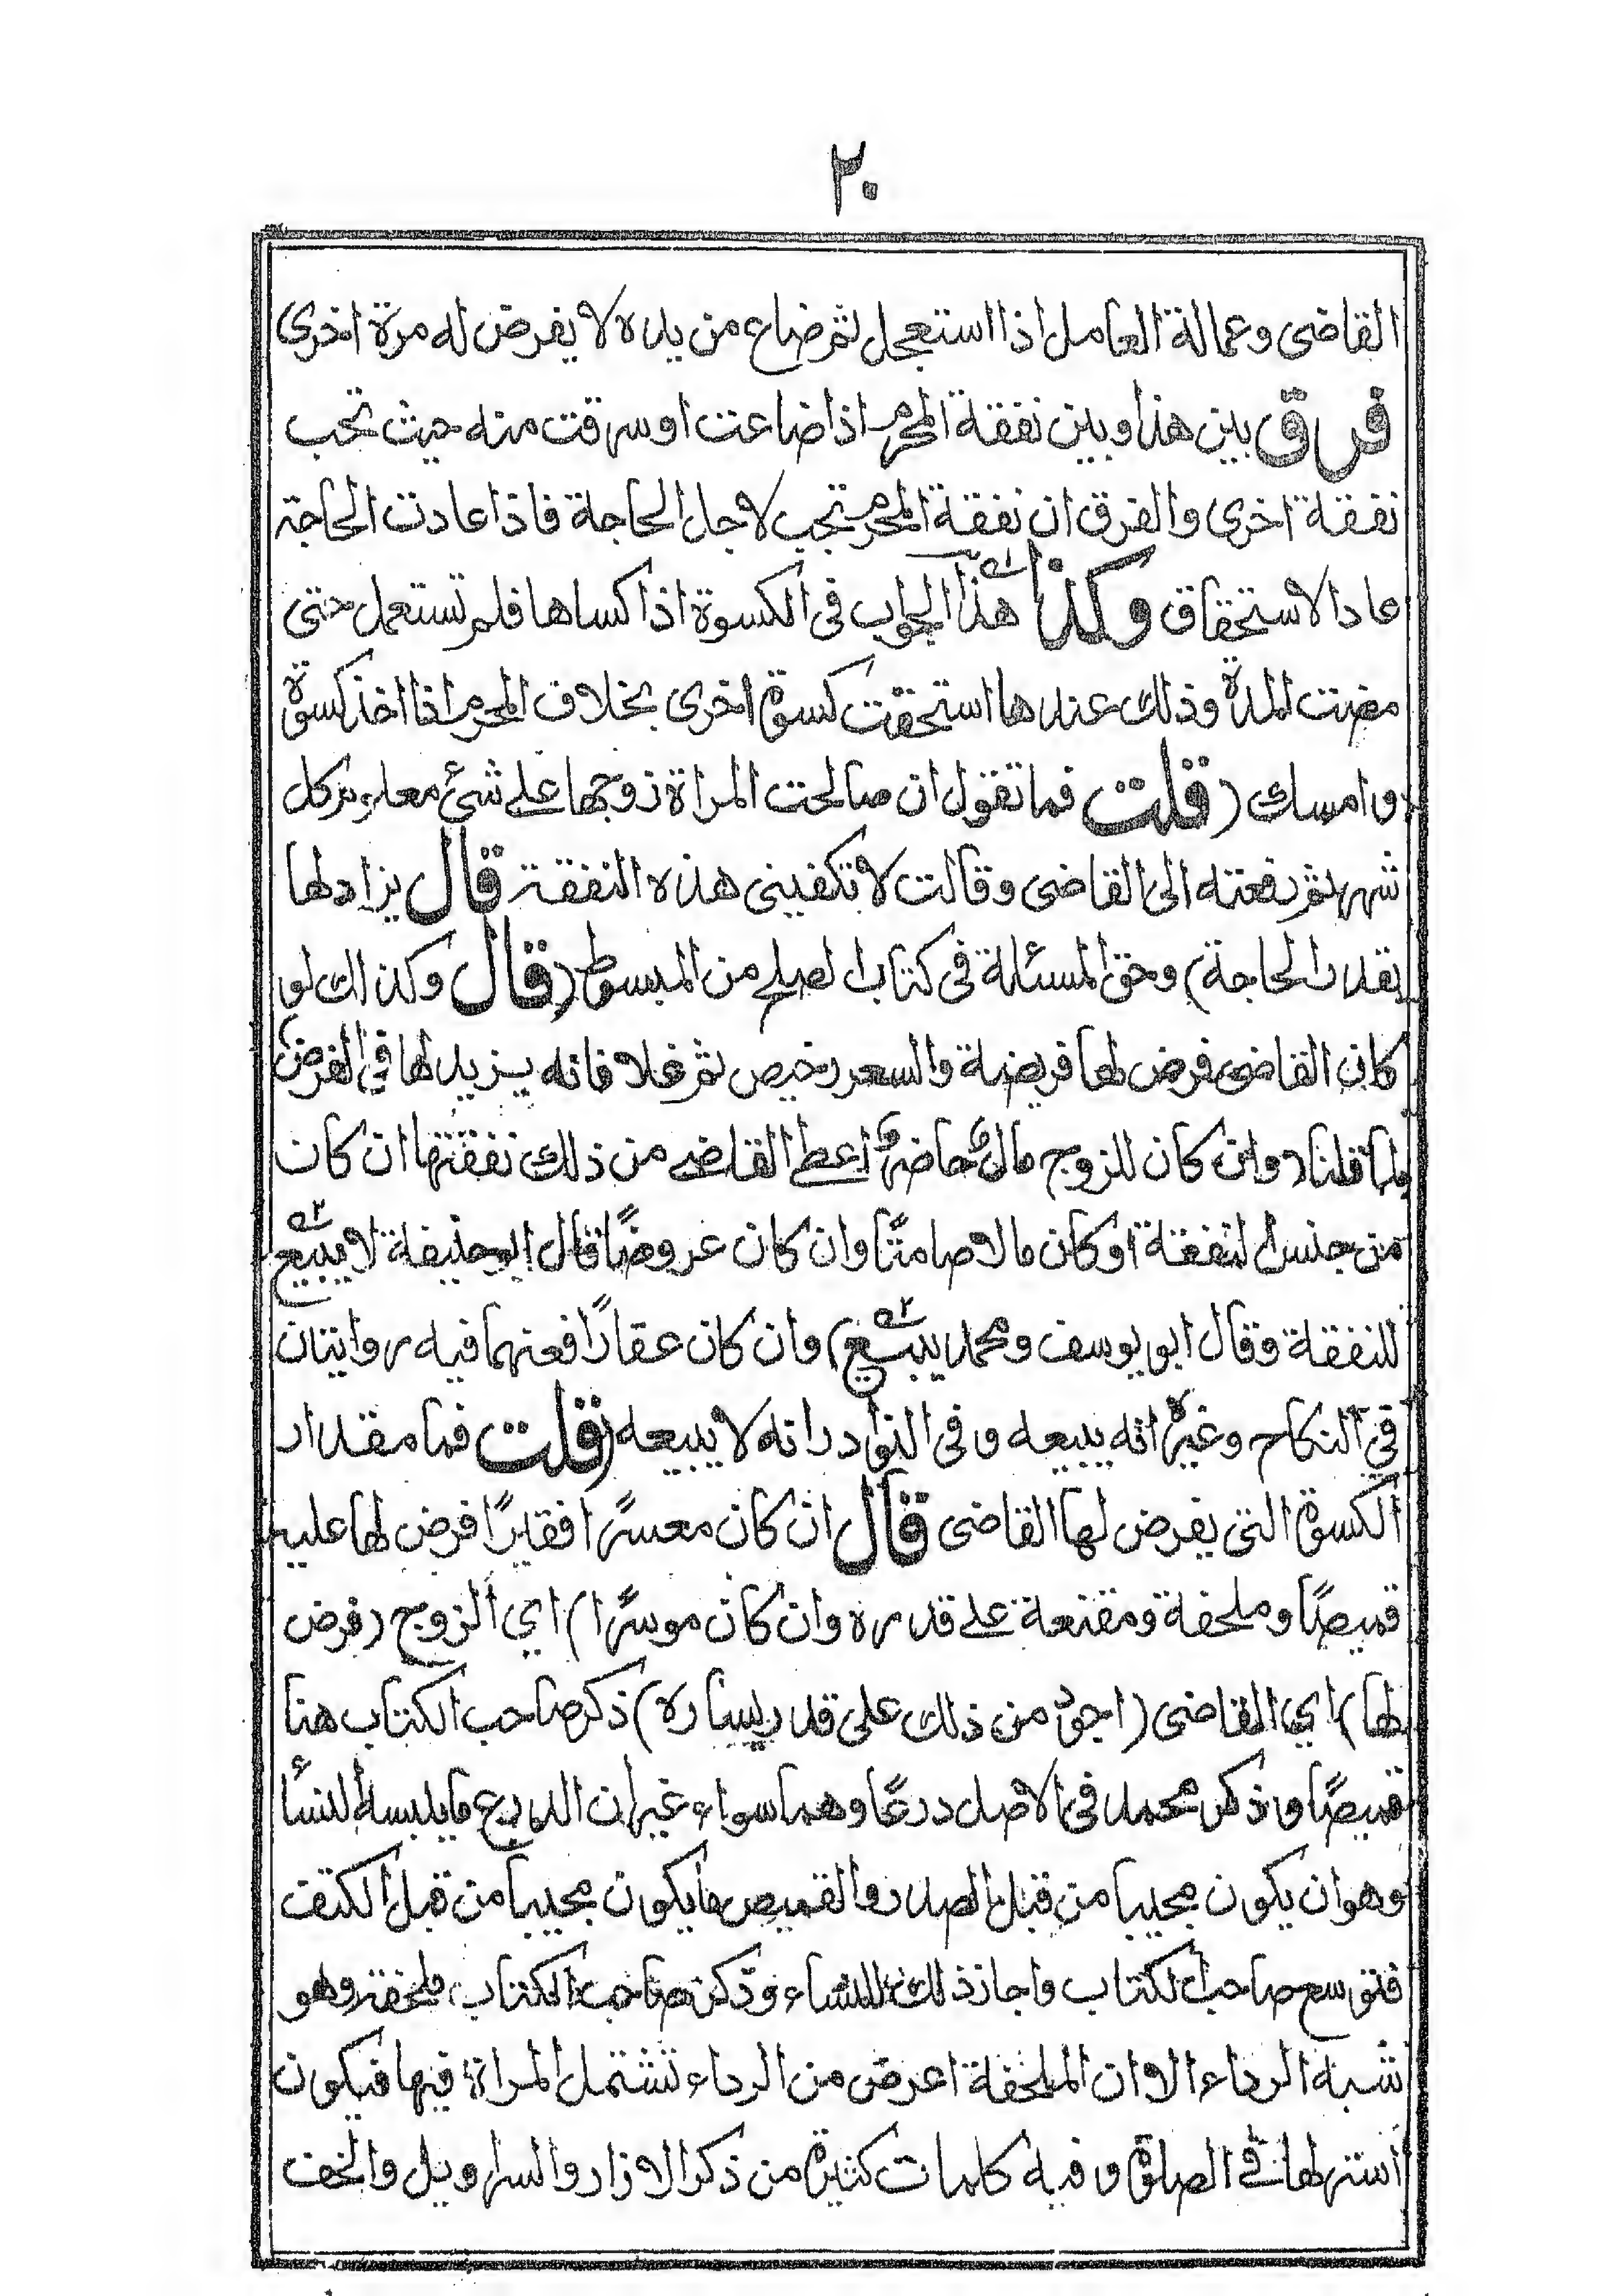 ٢٠
القاضى وعمالة العامل اذا استعجل ثم ضاع من يده لا يفرض له مرة اخرى
فرق بين هذا وبين نفقة المحرم اذا ضاعت او سرقت منه حيث تجب
نفقة اخرى والفرق ان نفقة المحرم تجب لاجل الحاجة فاذا عادت الحاجة
عاد الاستحقاق وكذا هذا الجواب فى الكسوة اذا كساها فلم تستعمل حتى
مضت المدة وذلك عندها استحقت كسوة اخرى بخلاف المحرم اذا اخذ كسوة
وامسك (قلت فما تقول ان صالحت المراة زوجها على شئ معلوم كل
شهر ثم رفعته الى القاضى وقالت لا تكفينى هذه النفقة قال يزاد لها
بقدر الحاجة) وحق المسئلة فى كتاب الصلح من المبسوط (قال وكذلك لو
كان القاضى فرض لها فريضة والسعر رخيص ثم غلا فانه يزيد لها فى الفرض
لما قلنا (وان كان للزوج مال حاضر اعطى القاضى من ذلك نفقتها ان كان
من جنس النفقة او كان مالا صامتًا وان كان عروضًا قال ابو حنيفة لا يبيع
للنفقة وقال ابو يوسف ومحمد يبيع) وان كان عقارًا فعنهما فيه روايتان
فى النكاح وغيره انه يبيعه وفى النوادر انه لا يبيعه (قلت فما مقدار
الكسوة التى يفرض لها القاضى قال ان كان معسرًا فقيرًا فرض لها عليه
قميصًا وملحفة ومقنعة على قدره وان كان موسرًا) اي الزوج (فرض
لها) اي القاضى (اجود من ذلك على قدر يساره) ذكر صاحب الكتاب هنا
قميصًا وذكر محمد فى الاصل درعًا وهما سواء غير ان الدرع ما يلبسه النسأ
وهو ان يكون مجيبا من قبل الصدر والقميص ما يكون مجيبا من قبل الكتف
فتوسع صاحب الكتاب واجاز ذلك للنساء وذكر صاحب الكتاب ملحفة وهو
شبه الرداء الا ان الملحفة اعرض من الرداء تشتمل المراة فيها فيكون
استر لها فى الصلوة وفيه كلمات كثيرة من ذكر الازار والسراويل والخف